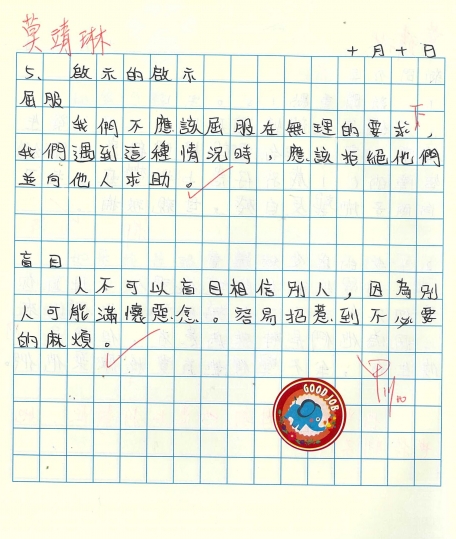 莫靖琳
十月十日
5. 啟示的啟示
屈服
我們不應該屈服在無理的要求下，
我們遇到這種情況時，應該拒絕他們
並向他人求助。
盲目
人不可以盲目相信別人，因為別
人可能滿懷惡念。容易招惹到不必要
的麻煩。
甲
11/10
GOOD JOB